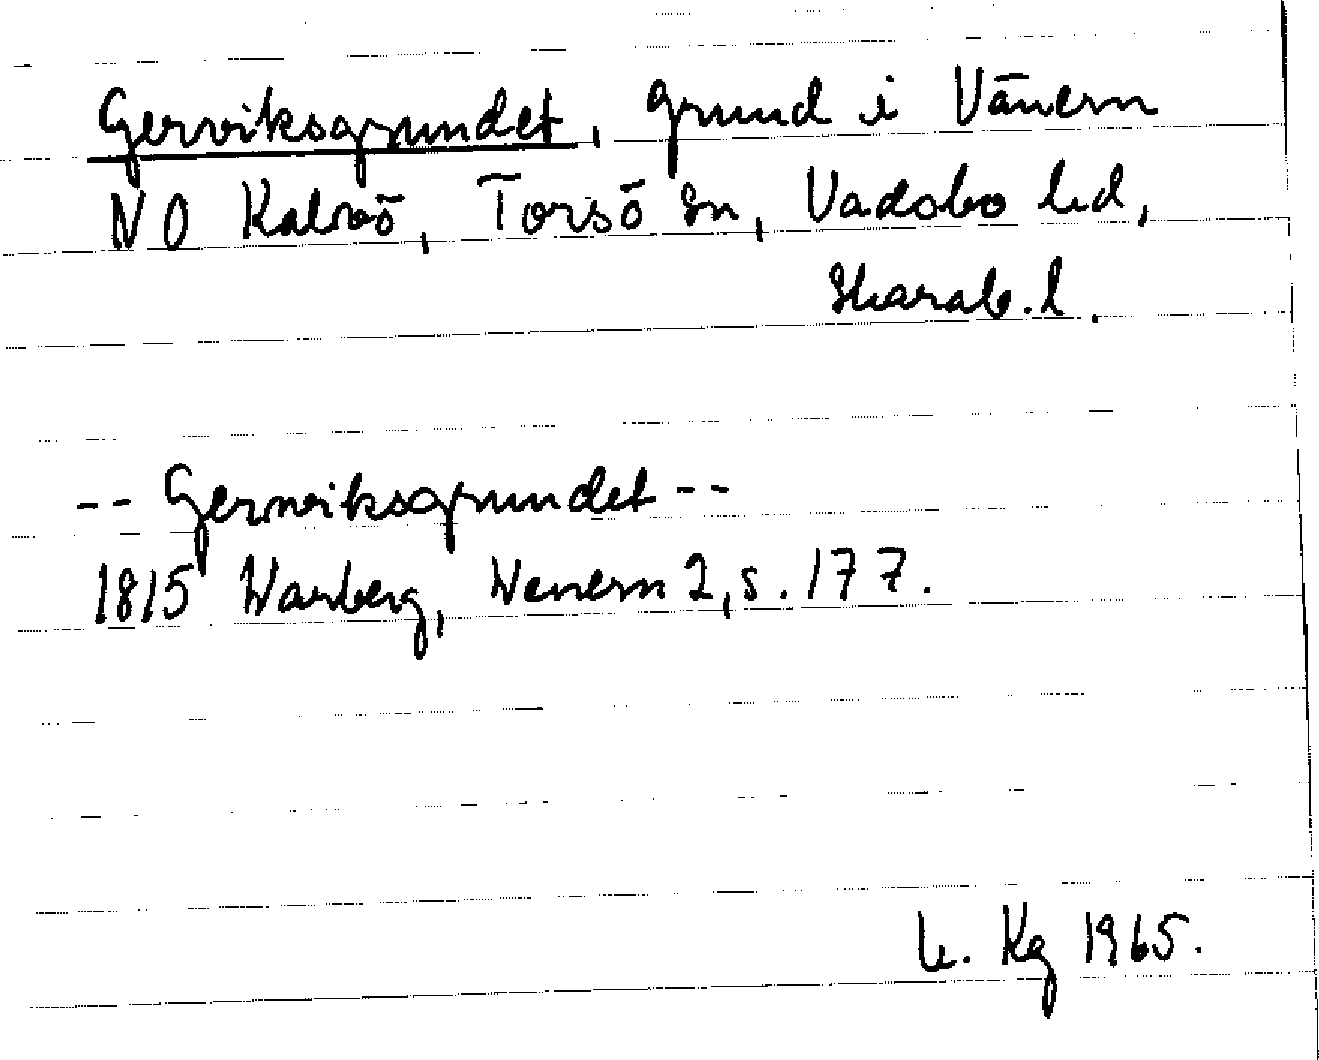 Gerviksgrundet, grund i Vänern
NO Kalvö, Torsö sn, Vadsbo hd,
Skarab. l.
-- Gerviksgrundet --
1815 Warberg, Wenern 2, s. 177.
Kg 1965.